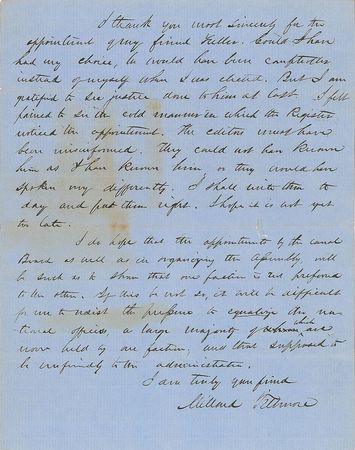 I thank you most sincerely for the
appointment of my friend Filler. Could I have
had my choice, he would have been comptroller
instead of myself when I was elected. But I am
gratified to see justice done to him at last. I felt
pained to see the cold manner in which the Register
noticed the appointment. The editors must have
been misinformed. They could not have known
him as I have known him, or they would have
spoken very differently. I shall write them to
day and put them right. I hope it is not yet
too late.
I do hope that the appointments by the canal
Board as well as in organizing the Assembly will
be such as to show that one faction is not preferred
to the other. If this is not so, it will be difficult
for me to resist the pressure to equalize the na-
tional offices, a large majority of which are
now held by one faction, and that supposed to
be unfriendly to the administration.
I am truly your friend
Millard Fillmore